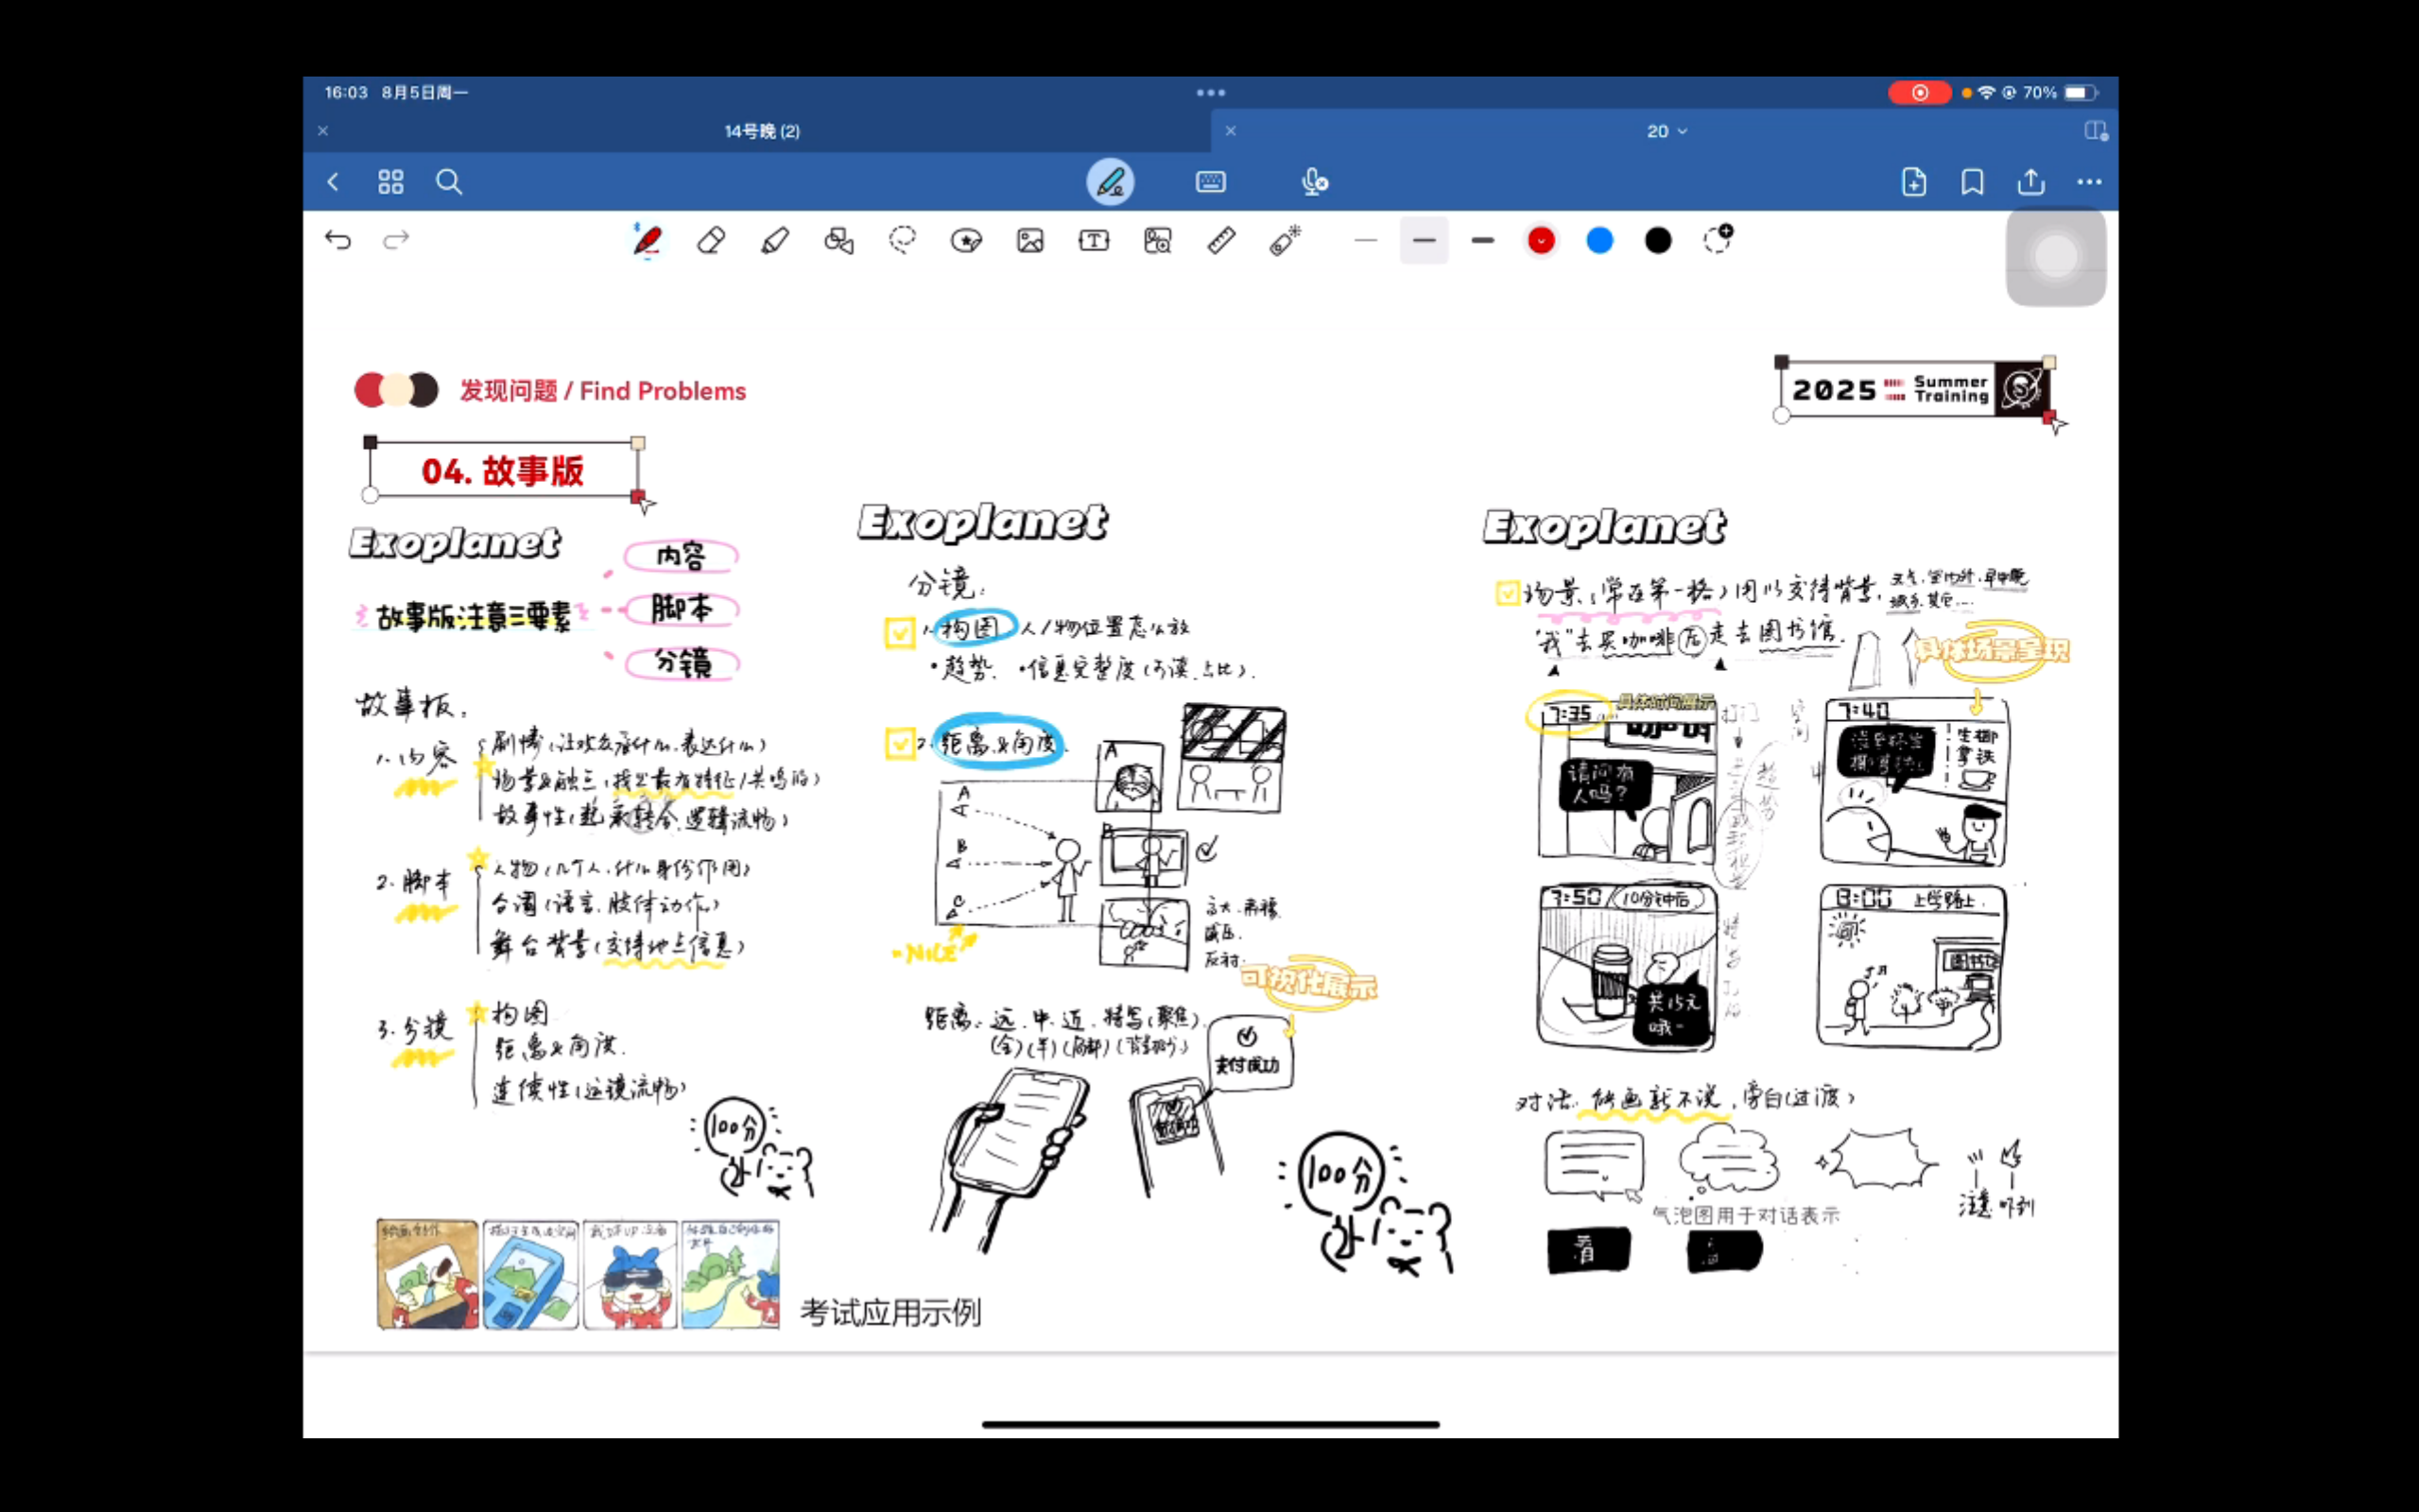 16:03 8月5日周一
70%
14号晚 (2)
20
发现问题 / Find Problems
2025 Summer Training
04. 故事版
Exoplanet
故事版注意三要素
内容
脚本
分镜
故事板:
1.内容
剧情(让观众看什么.表达什么)
场景&触点(找出最有特征/共鸣的)
故事性(起承转合.逻辑流畅)
2.脚本
人物(几个人.什么身份作用)
台词(语言.肢体动作)
舞台背景(交待地点信息)
3.分镜
构图
距离&角度.
连续性(运镜流畅)
100分
考试应用示例
Exoplanet
分镜:
1.构图 人/物位置怎么放
•趋势. •信息完整度(可读.占比).
2.距离&角度.
A
A
B
B
C
NICE
高大.
减压.
反衬.
可视化展示
距离: 远.中.近.特写(聚焦).
(全)(半)(局部)
支付成功
100分
Exoplanet
场景(常在第一格)用以交待背景.
天气.室内外.早中晚
城乡.其它...
"我"去买咖啡后走去图书馆.
具体场景呈现
7:35
具体时间展示
请问有人吗?
趋势
空间
7:40
生椰拿铁
7:50 10分钟后
共15元哦~
8:00 上学路上.
图书馆
对话. 能画就不说.旁白(过渡)
气泡图用于对话表示
注意 吓到